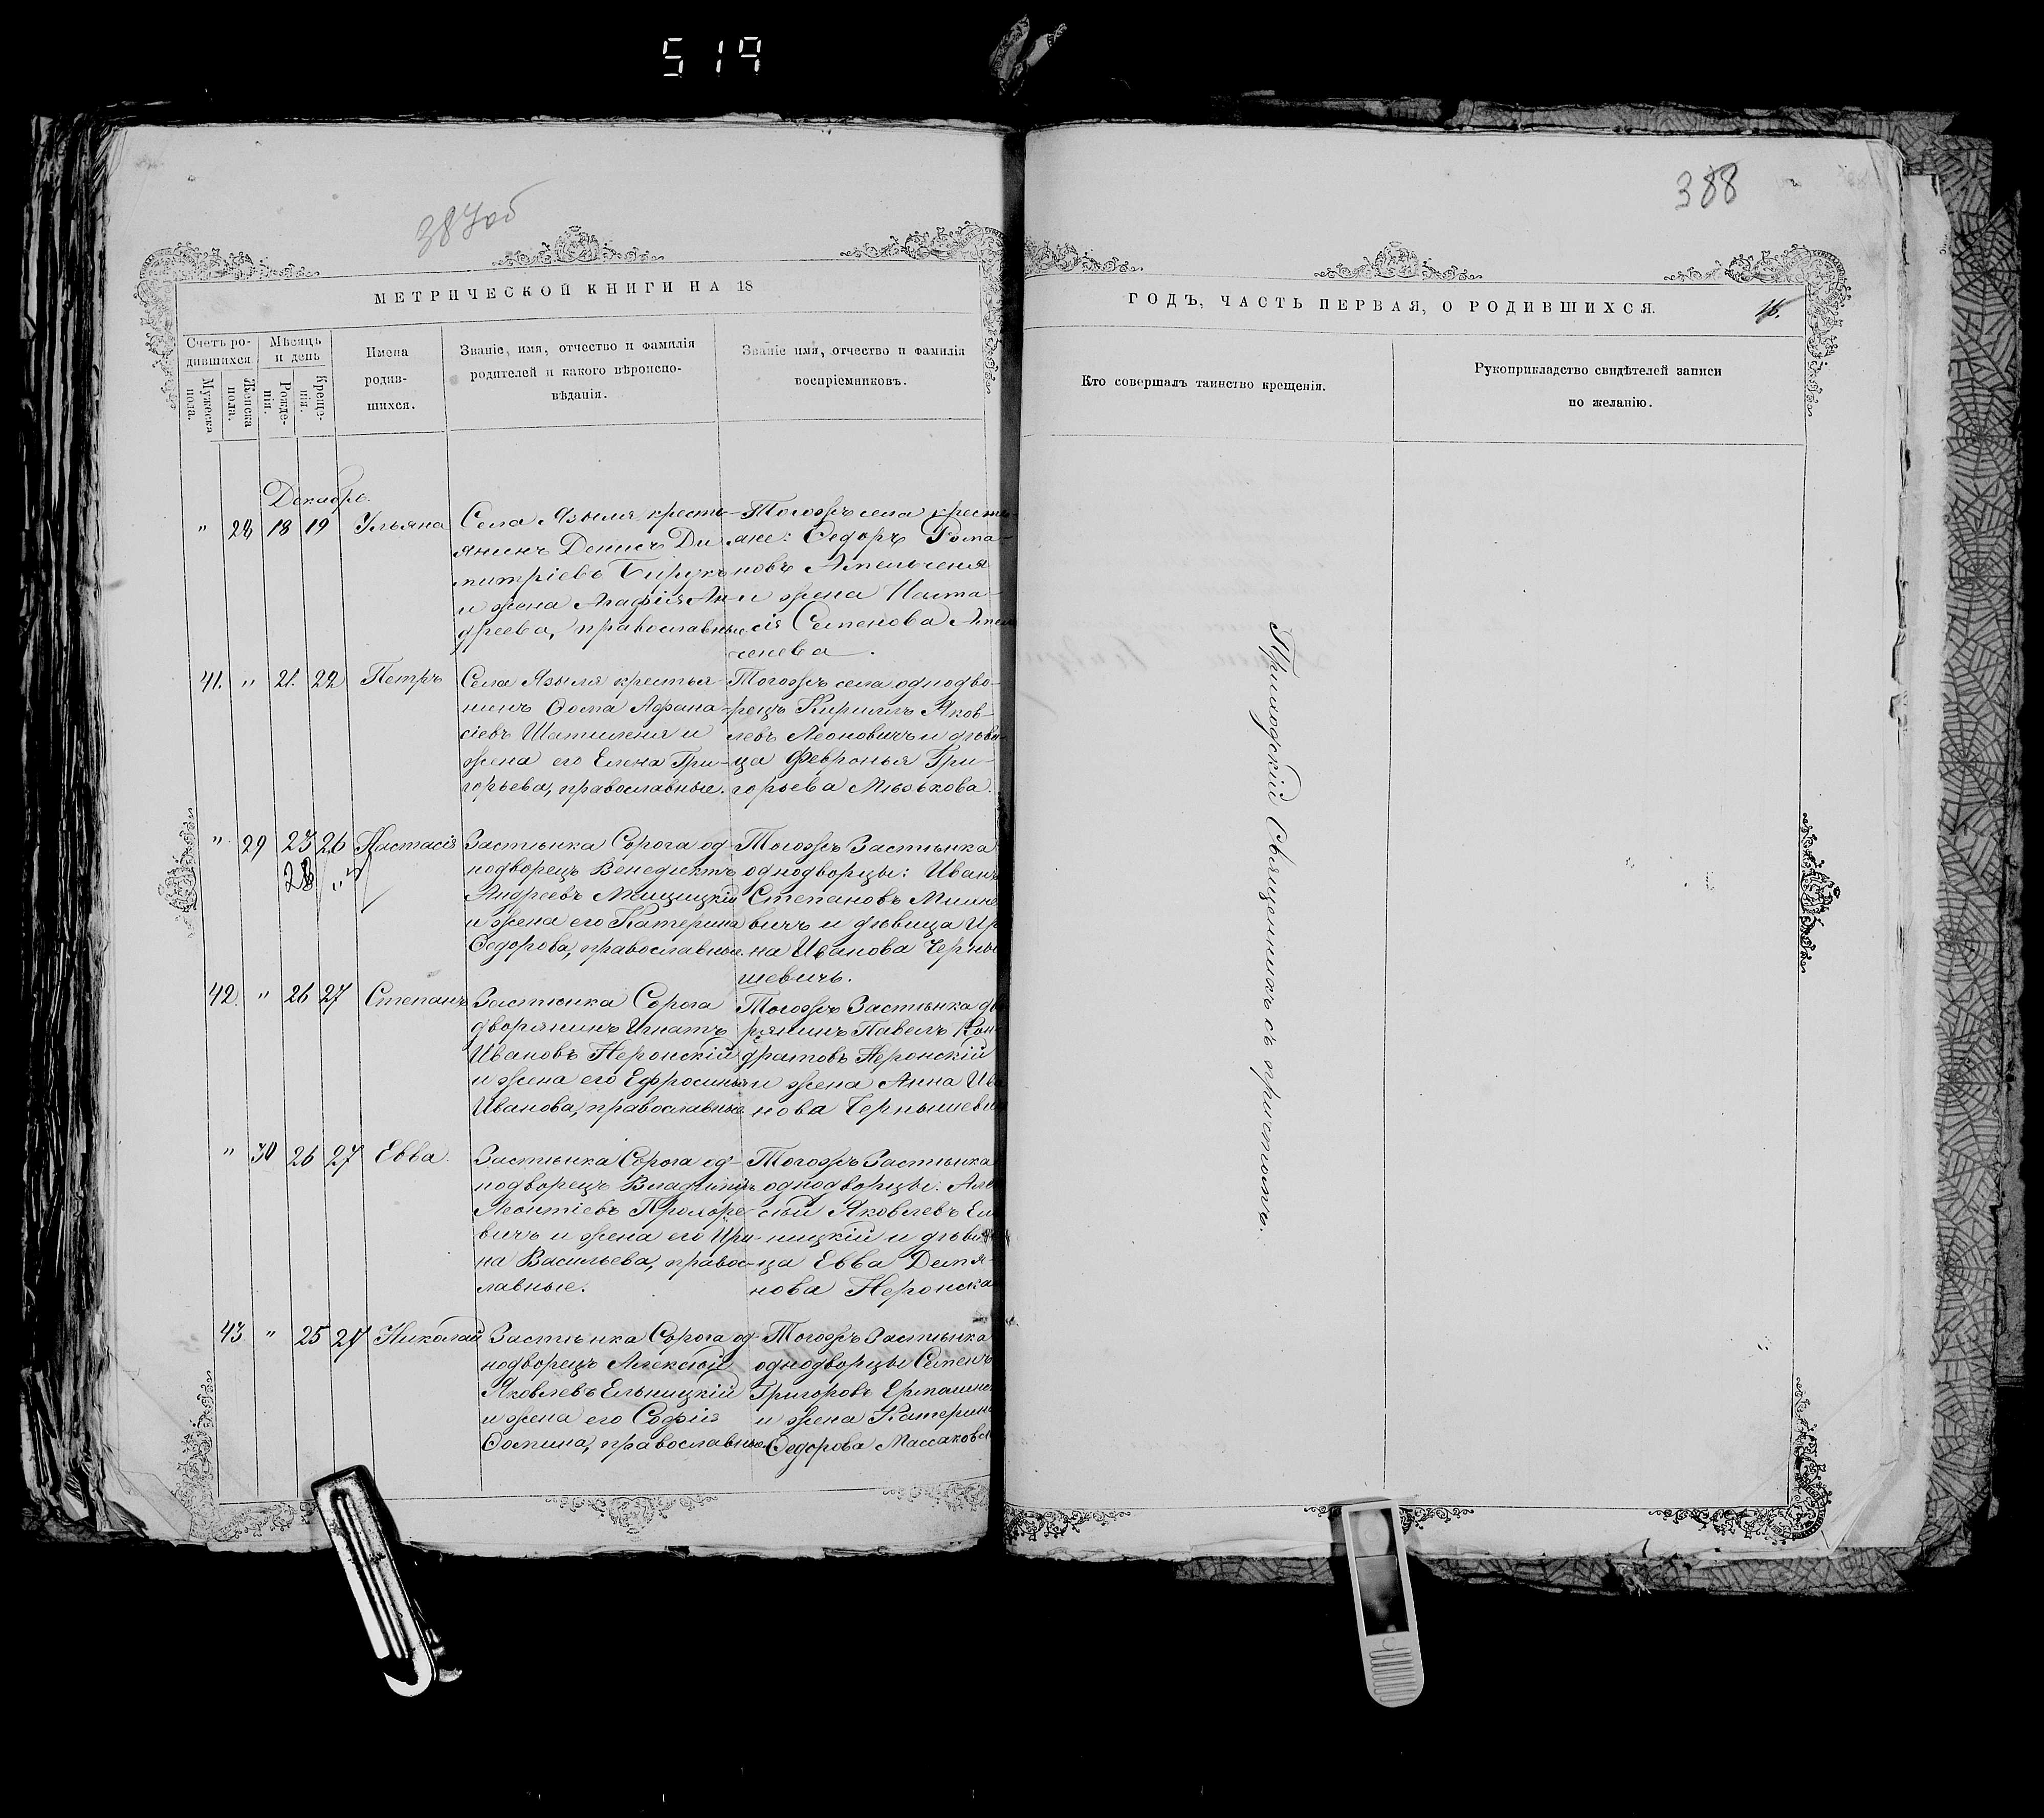 519
387об
388
МЕТРИЧЕСКОЙ КНИГИ НА 18
ГОДЪ, ЧАСТЬ ПЕРВАЯ, О РОДИВШИХСЯ.
16.
Счетъ ро-
дившихся.
Мужеска
пола.
Женска
пола.
Мѣсяцъ
и день
Рожде-
нія.
Креще-
нія.
Имена
родив-
шихся.
Званіе, имя, отчество и фамилія
родителей и какого вѣроиспо-
вѣданія.
Званіе имя, отчество и фамилія
воспріемниковъ.
Кто совершалъ таинство крещенія.
Рукоприкладство свидѣтелей записи
по желанію.
Декабрь.
" 28 18 19 Ульяна
Села Языля кресть-
янинъ Денисъ Ди-
митріевъ Бирукъ
и жена Агафія Ан-
дреева, православные
Тогожъ села кресть-
яне: Ѳедоръ Рома-
новъ Амельченя
и жена Наста-
сія Семенова Амель-
ченева.
41. " 21. 22 Петръ
Села Языля крестья-
нинъ Ѳома Афана-
сіевъ Шатиленя и
жена его Елена Гри-
горьева, православные.
Тогожъ села однодво-
рецъ Кириллъ Яков-
левъ Леоновичъ и дѣви-
ца Февронья Гри-
горьева
" 29 23 26 Настасія
28 "
Застѣнка Сорога од-
нодворецъ Венедиктъ
Андреевъ Мицицкій
и жена его Катерина
Ѳедорова, православные.
Тогожъ Застѣнка
однодворцы: Иванъ
Степановъ
вичъ и дѣвица
на Иванова Черны-
шевичъ.
42. " 26 27 Степанъ
Застѣнка Сорога
дворянинъ Игнатъ
Ивановъ Неронскій
и жена его Ефросинья
Иванова, православные
Тогожъ Застѣнка дво-
рянинъ Павелъ Кон-
дратовъ Неронскій
и жена Анна Ива-
нова Чернышевичъ
" 30 26 27 Евва.
Застѣнка Сорога од-
нодворецъ Владимиръ
Леонтіевъ
вичъ и жена его Ири-
на Васильева, правос-
лавные.
Тогожъ Застѣнка
однодворцы: Алек-
сѣй Яковлевъ Ель-
ницкій и дѣви-
ца Евва Демья-
нова Неронска
43 " 25 27 Николай
Застѣнка Сорога од-
нодворецъ Алексѣй
Яковлевъ Ельницкій
и жена его Софія
Ѳомина, православные.
Тогожъ Застѣнка
однодворцы Семенъ
Григоровъ
и жена Катерина
Ѳедорова
Приходскій Священникъ съ причтомъ.